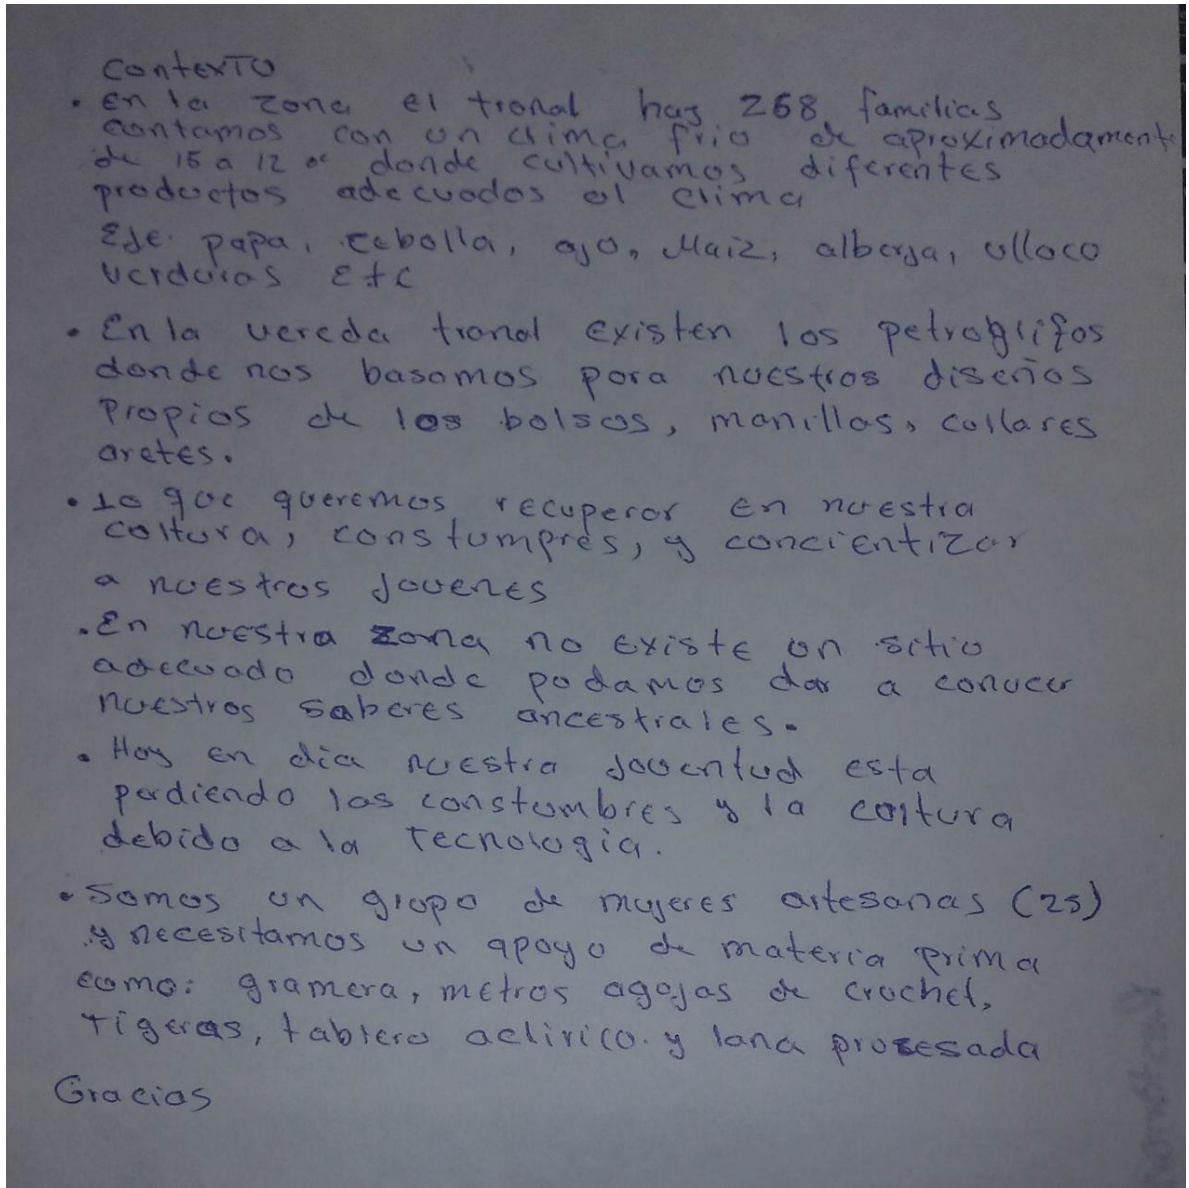 ContexTO
• En la zona el tronal hay 268 familias
contamos con un clima frio de aproximadament
de 15 a 12 °c donde cultivamos diferentes
productos adecuados al clima
Eje. papa, cebolla, ajo, Maiz, alberja, ulloco
verduras Etc
• En la vereda tronal existen los petroglifos
donde nos basamos para nuestros diseños
propios de los bolsos, manillas, collares
aretes.
• Lo que queremos recuperar en nuestra
coltura, constumpres, y concientizar
a nuestros jovenes
• En nuestra zona no existe un sitio
adecuado donde podamos dar a conocer
nuestros saberes ancestrales.
• Hoy en dia nuestra joventud esta
perdiendo las constumbres y la coltura
debido a la tecnologia.
• Somos un grupo de mujeres artesanas (25)
y necesitamos un apoyo de materia prima
como: gramera, metros agojas de crochet,
Tigeras, tablero aclirico. y lana prosesada
Gracias